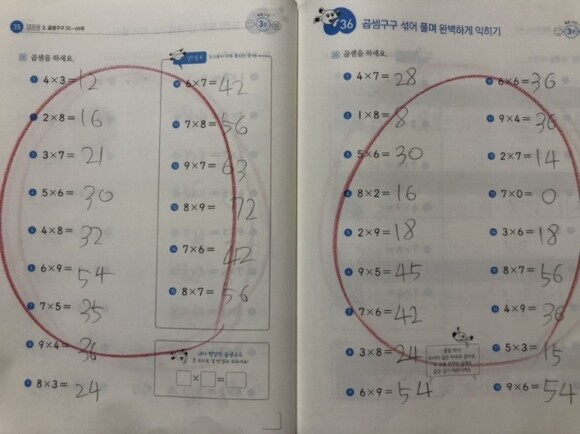 35
2. 곱셈구구
곱셈을 하세요.
4×3=12
2×8=16
3×7=21
5×6=30
4×8=32
6×9=54
7×5=35
9×4=36
8×3=24
6×7=42
7×8=56
9×7=63
8×9=72
7×6=42
8×7=56
□×□=□
36 곱셈구구 섞어 풀며 완벽하게 익히기
곱셈을 하세요.
4×7=28
1×8=8
5×6=30
8×2=16
2×9=18
9×5=45
7×6=42
3×8=24
6×9=54
6×6=36
9×4=36
2×7=14
7×0=0
3×6=18
8×7=56
4×9=36
5×3=15
9×6=54